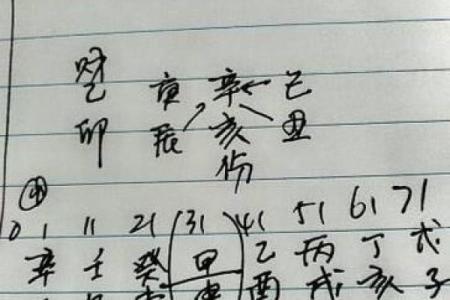 财
乙 庚 辛 己
卯 辰 亥 丑
伤
0 1 11 21 (31) 41 51 61 71
辛 壬 癸 甲 乙 丙 丁 戊
申 酉 戌 亥 子